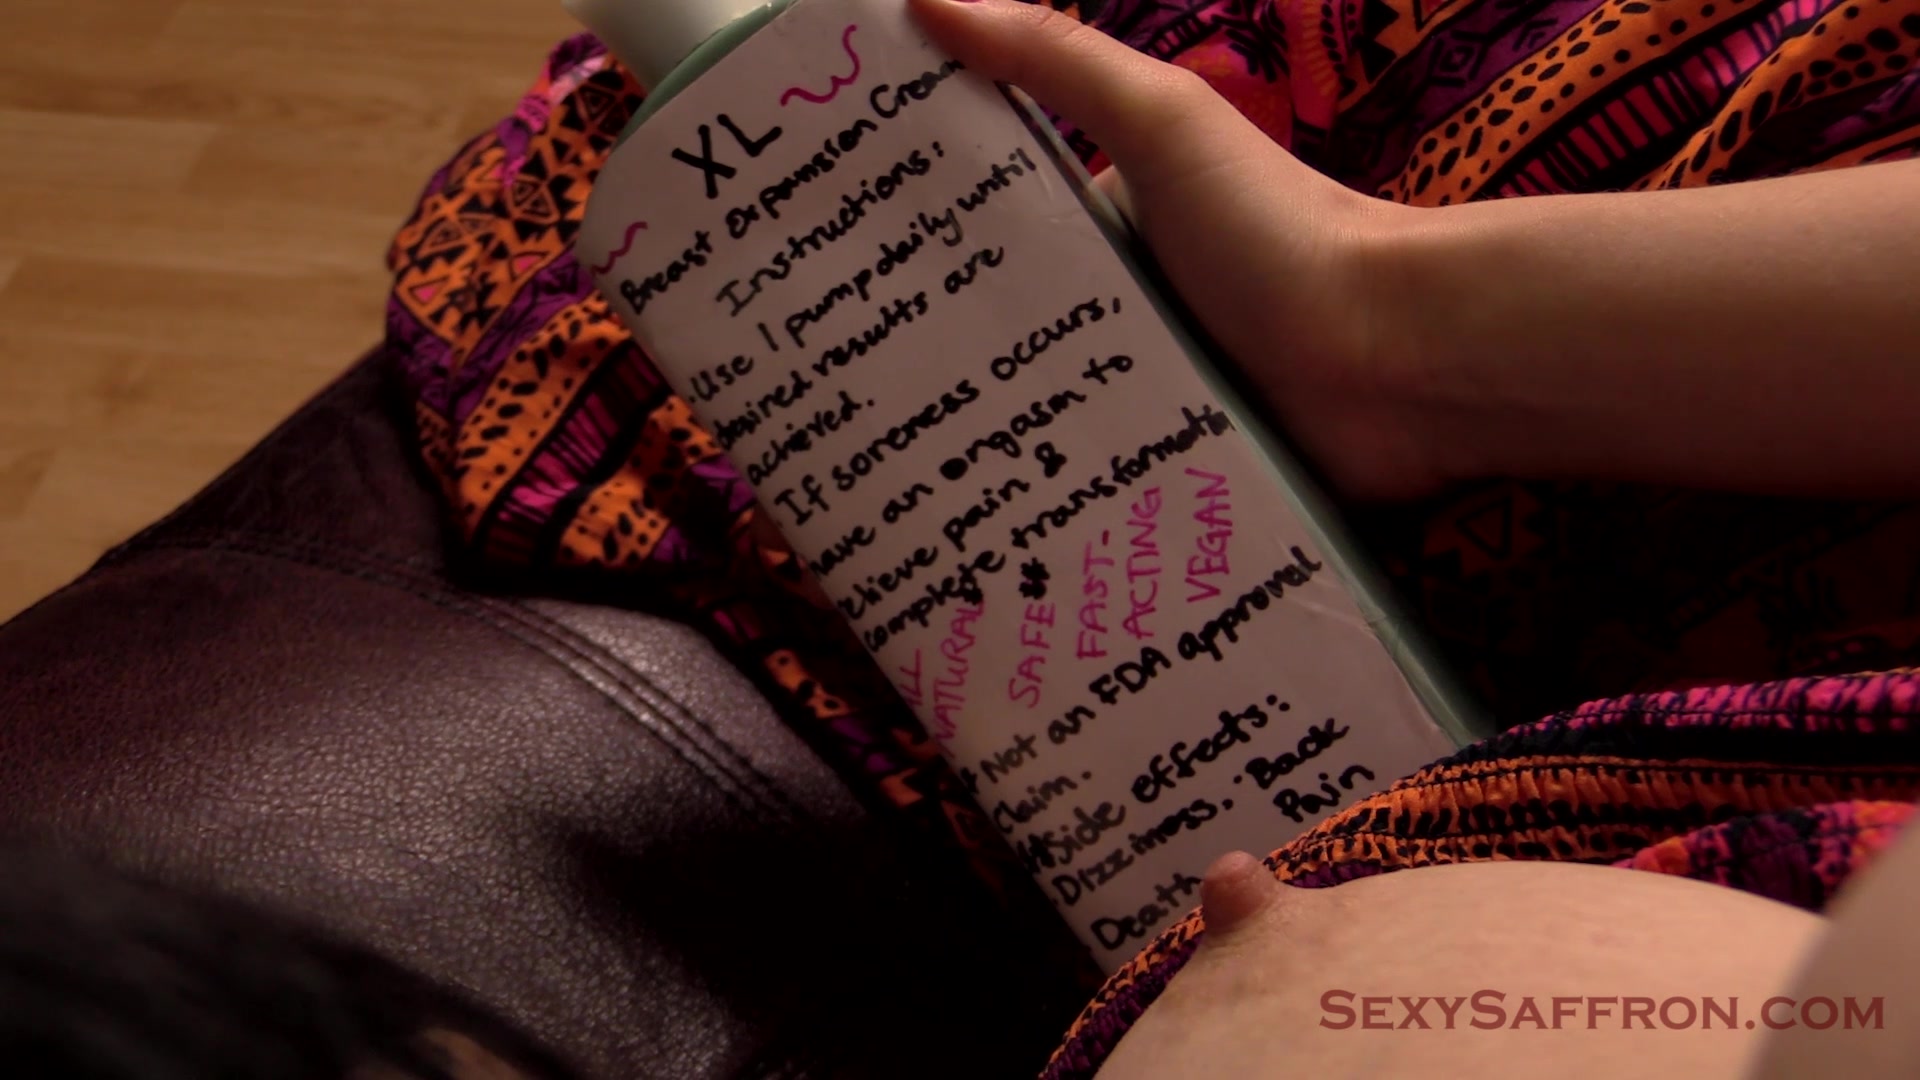 XL
Breast Expansion Cream
Instructions:
·Use 1 pump daily until
desired results are
achieved.
·If soreness occurs,
have an orgasm to
relieve pain &
complete transformation
ALL
NATURAL*
SAFE**
FAST-
ACTING
VEGAN
* Not an FDA approval
claim.
**Side effects:
·Dizziness, ·Back
Pain
·Death
SEXYSAFFRON.COM